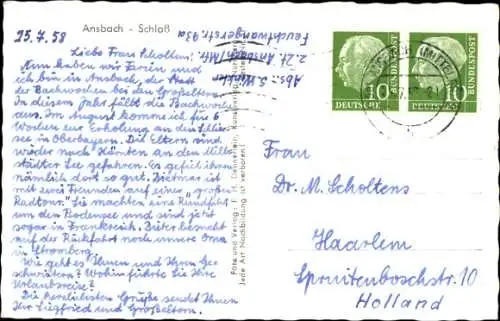 Ansbach - Schloß
25.7.58
Liebe Frau Scholtens!
Nun haben wir Ferien und
ich bin in Ansbach, der Stadt
der Bachwochen bei den Großeltern.
In diesem Jahr fällt die Bachwoche
aus. Im August komme ich für 6
Wochen zur Erholung an den
see in Oberbayern. Die Eltern sind
wieder nach Kärnten an den Mill-
städter See gefahren. Es gefiel ihnen
nämlich dort so gut. Dietmar ist
mit zwei Freunden auf einer "großen
Radtour." Sie machten eine Rundfahrt
um den Bodensee und sind jetzt
sogar in Frankreich. Dieter besucht
auf der Rückfahrt noch unsere Oma
in Stromberg.
Wie geht es Ihnen und Ihren Ge-
schwistern? Wohin führte Sie Ihre
Urlaubsreise?
Die herzlichsten Grüße sendet Ihnen
Ihr Siegfried und Großeltern.
Abs.: S. Winter
z. Zt. Ansbach/Mfr.
Feuchtwangerstr. 93a
Foto und Verlag:
Jede Art Nachbildung ist verboten!
10
DEUTSCHE
BUNDESPOST
10
DEUTSCHE
BUNDESPOST
Frau
Dr. M. Scholtens
Haarlem
Spruitenboschstr. 10
Holland